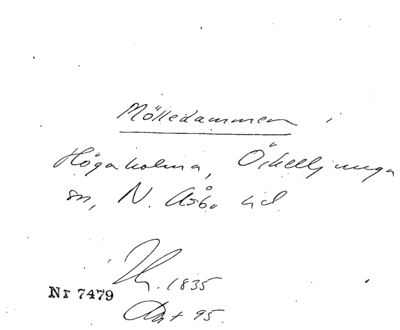 Mölledammen i
Högaholma, Örkelljunga
sn, N. Åsbo hd
1835
Nr 7479
95.